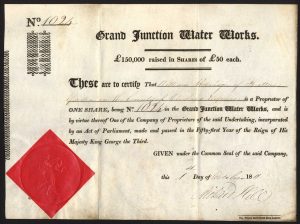 No. 1024
Grand Junction Water Works.
£150,000 raised in SHARES of £50 each.
These are to certify That William
is a Proprietor of
ONE SHARE, being No. 1024 in the Grand Junction Water Works, and is
by virtue thereof One of the Company of Proprietors of the said Undertaking, incorporated
by an Act of Parliament, made and passed in the Fifty-first Year of the Reign of His
Majesty King George the Third.
GIVEN under the Common Seal of the said Company,
this Day of 18